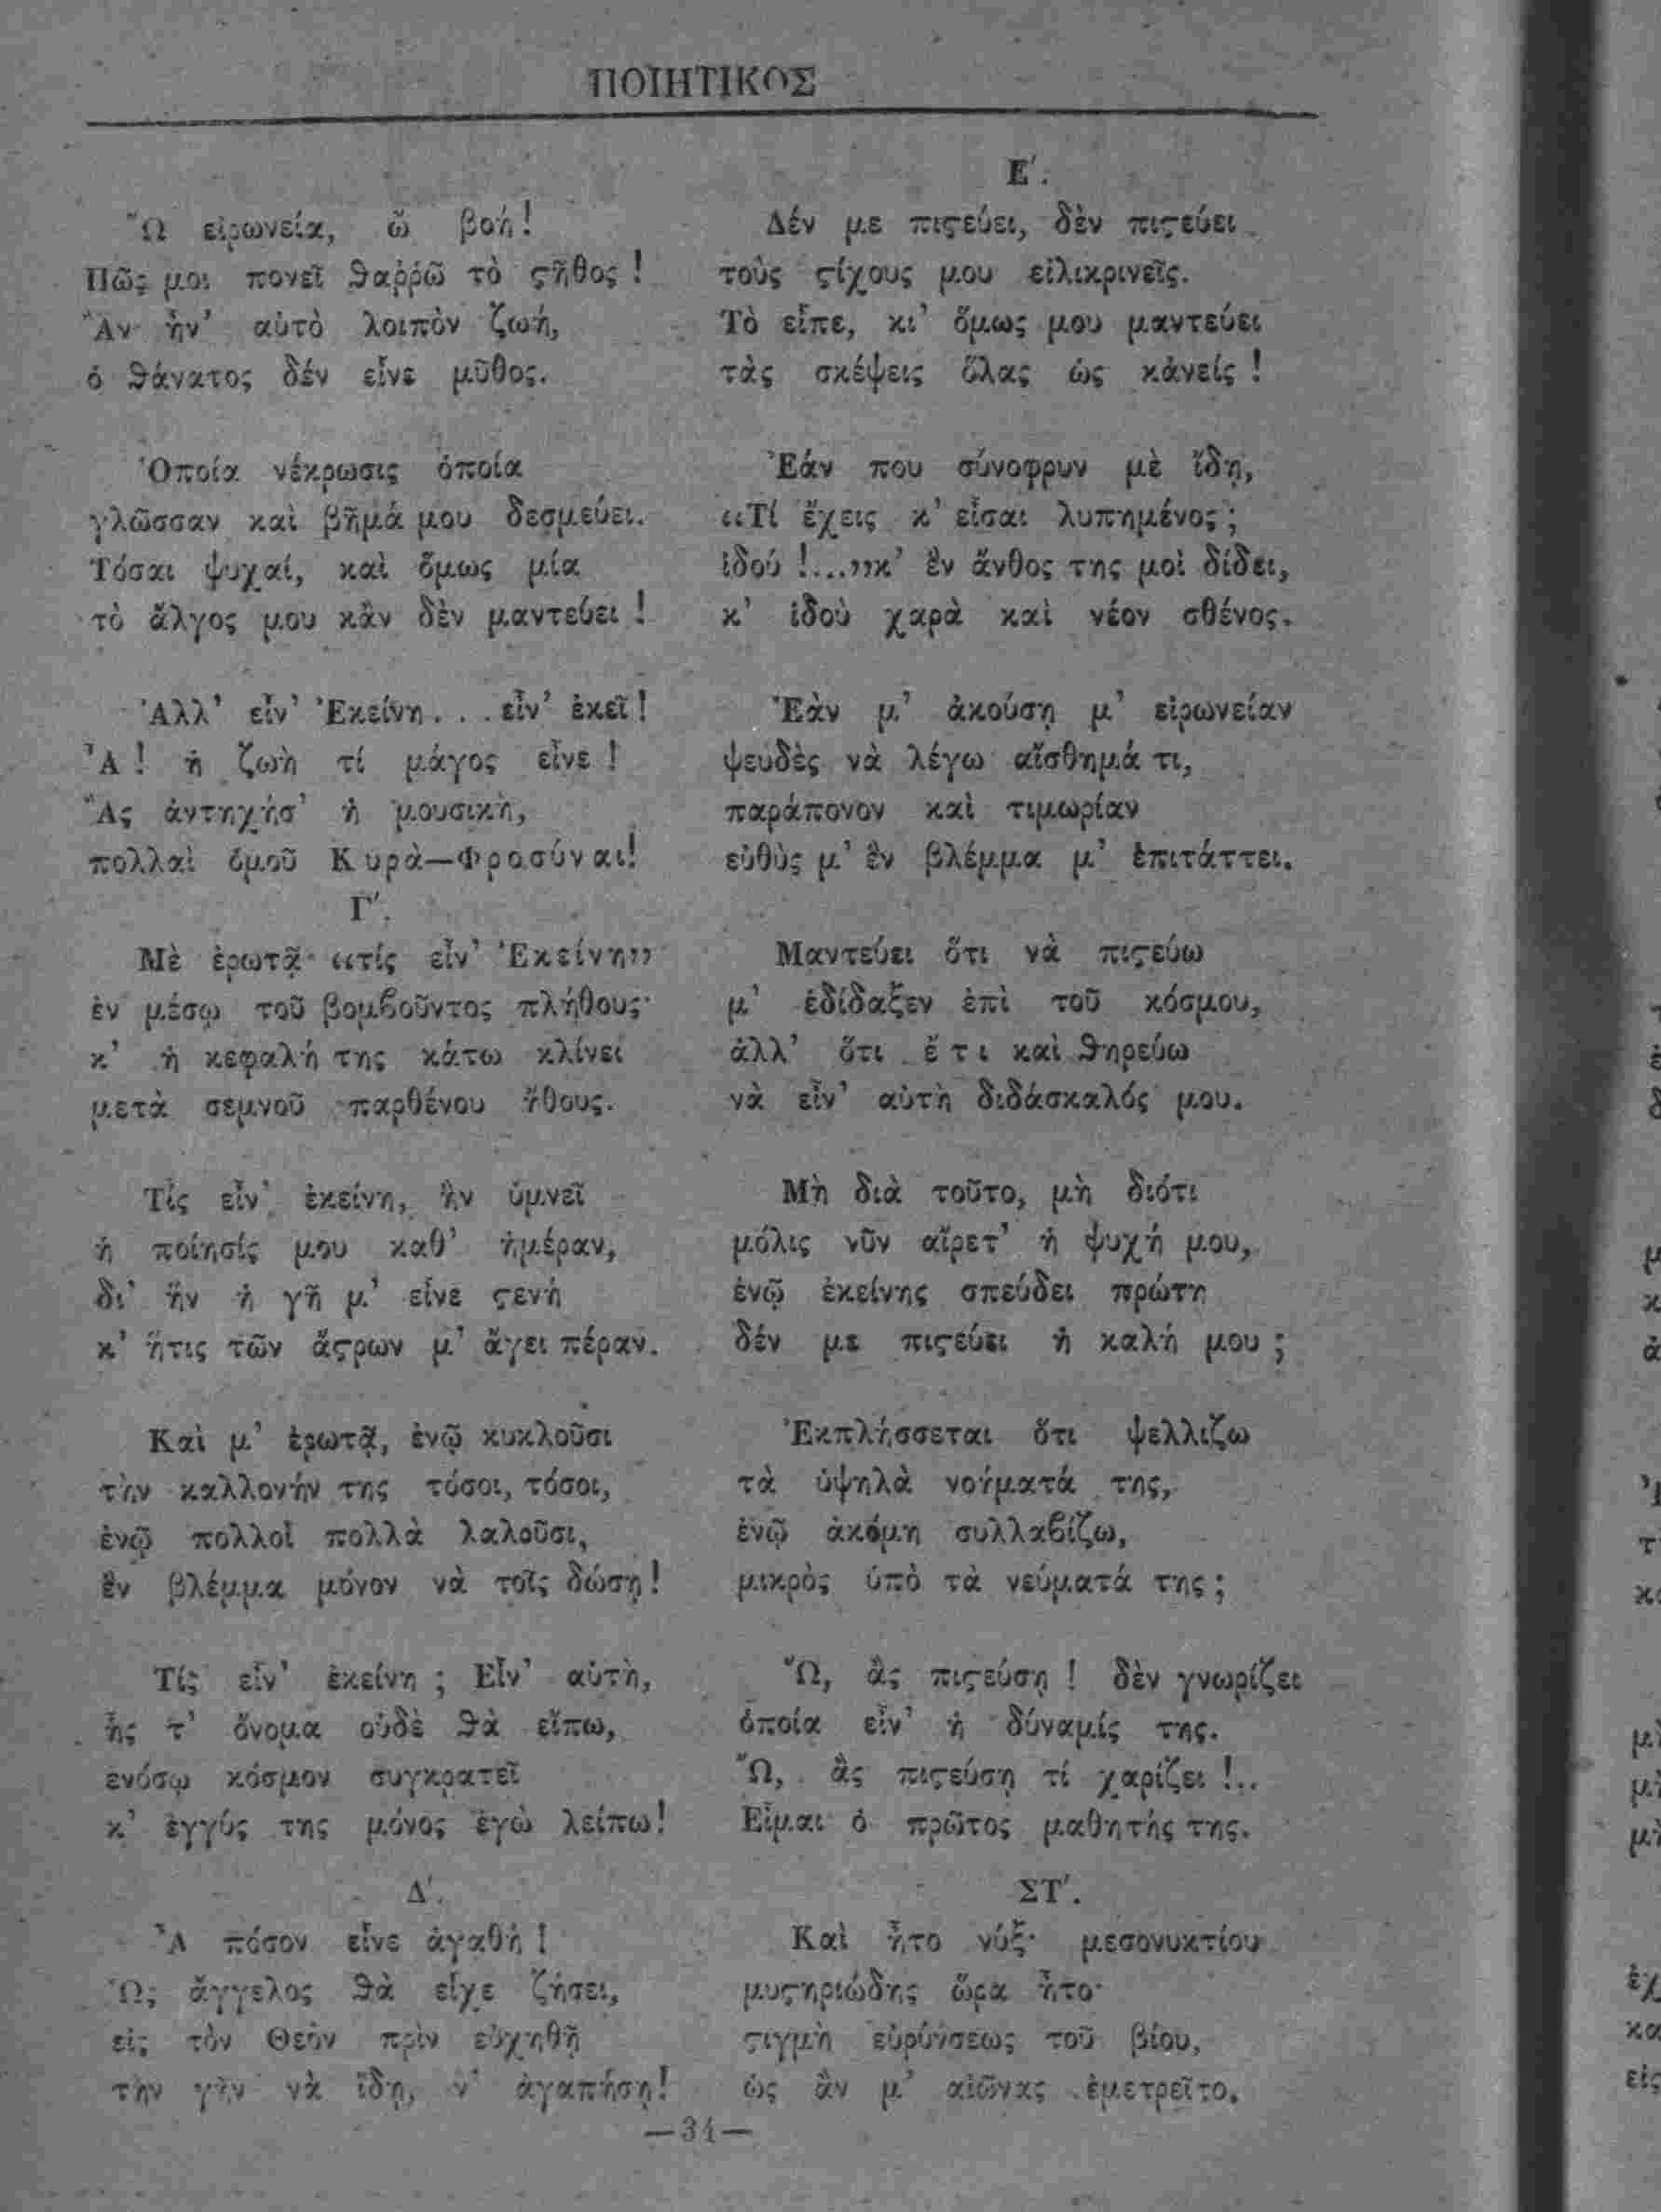 ΠΟΙΗΤΙΚΟΣ
Ὢ εἰρωνεία, ὢ βοή!
Πῶς μοι πονεῖ θαῤῥῶ τὸ ςῆθος!
Ἂν ἦν' αὐτὸ λοιπὸν ζωή,
ὁ θάνατος δέν εἶνε μῦθος.
Ὁποία νέκρωσις ὁποία
γλῶσσαν καὶ βῆμά μου δεσμεύει.
Τόσαι ψυχαί, καὶ ὅμως μία
τὸ ἄλγος μου κἂν δὲν μαντεύει!
Ἀλλ' εἶν' Ἐκείνη... εἶν' ἐκεῖ!
Ἆ! ἡ ζωὴ τί μάγος εἶνε!
Ἂς ἀντηχήσ' ἡ μουσικὴ,
πολλαὶ ὁμοῦ Κυρὰ—Φροσύναι!
Γ'.
Μὲ ἐρωτᾷ· «τίς εἶν' Ἐκείνη»
ἐν μέσῳ τοῦ βομβοῦντος πλήθους·
κ' ἡ κεφαλή της κάτω κλίνει
μετὰ σεμνοῦ παρθένου ἤθους.
Τίς εἶν' ἐκείνη, ἣν ὑμνεῖ
ἡ ποίησίς μου καθ' ἡμέραν,
δι' ἣν ἡ γῆ μ' εἶνε ςενὴ
κ' ἥτις τῶν ἄςρων μ' ἄγει πέραν.
Καὶ μ' ἐρωτᾷ, ἐνῷ κυκλοῦσι
τὴν καλλονήν της τόσοι, τόσοι,
ἐνῷ πολλοὶ πολλὰ λαλοῦσι,
ἓν βλέμμα μόνον νὰ τοῖς δώσῃ!
Τίς εἶν' ἐκείνη; Εἶν' αὐτὴ,
ἧς τ' ὄνομα οὐδὲ θὰ εἴπω,
ενόσῳ κόσμον συγκρατεῖ
κ' ἐγγύς της μόνος ἐγὼ λείπω!
Δ'.
Ἆ πόσον εἶνε ἀγαθή!
Ὡς ἄγγελος θὰ εἶχε ζήσει,
εἰς τὸν Θεὸν πρὶν εὐχηθῇ
τὴν γῆν νὰ ἴδῃ, ν' ἀγαπήσῃ!
Ε'.
Δέν με πιςεύει, δὲν πιςεύει
τοὺς ςίχους μου εἰλικρινεῖς.
Τὸ εἶπε, κι' ὅμως μου μαντεύει
τὰς σκέψεις ὅλας ὡς κἀνείς!
Ἐάν που σύνοφρυν μὲ ἴδῃ,
«Τί ἔχεις κ' εἶσαι λυπημένος;
ἰδού!...»κ' ἓν ἄνθος της μοὶ δίδει,
κ' ἰδοὺ χαρὰ καὶ νέον σθένος.
Ἐὰν μ' ἀκούσῃ μ' εἰρωνείαν
ψευδὲς νὰ λέγω αἴσθημά τι,
παράπονον καὶ τιμωρίαν
εὐθὺς μ' ἓν βλέμμα μ' ἐπιτάττει.
Μαντεύει ὅτι νὰ πιςεύω
μ' ἐδίδαξεν ἐπὶ τοῦ κόσμου,
ἀλλ' ὅτι ἔτι καὶ θηρεύω
νὰ εἶν' αὐτὴ διδάσκαλός μου.
Μὴ διὰ τοῦτο, μὴ διότι
μόλις νῦν αἴρετ' ἡ ψυχή μου,
ἐνῷ ἐκείνης σπεύδει πρώτη
δέν με πιςεύει ἡ καλή μου;
Ἐκπλήσσεται ὅτι ψελλιζω
τὰ ὑψηλὰ νοήματά της,
ἐνῷ ἀκόμη συλλαβίζω,
μικρὸς ὑπὸ τὰ νεύματά της;
Ὢ, ἂς πιςεύσῃ! δὲν γνωρίζει
ὁποία εἶν' ἡ δύναμίς της.
Ὢ, ἂς πιςεύσῃ τί χαρίζει!..
Εἶμαι ὁ πρῶτος μαθητής της.
ΣΤ'.
Καὶ ἦτο νύξ· μεσονυκτίου
μυςηριώδης ὥρα ἦτο·
ςιγμὴ εὐρύνσεως τοῦ βίου,
ὡς ἂν μ' αἰῶνας ἐμετρεῖτο.
—34—